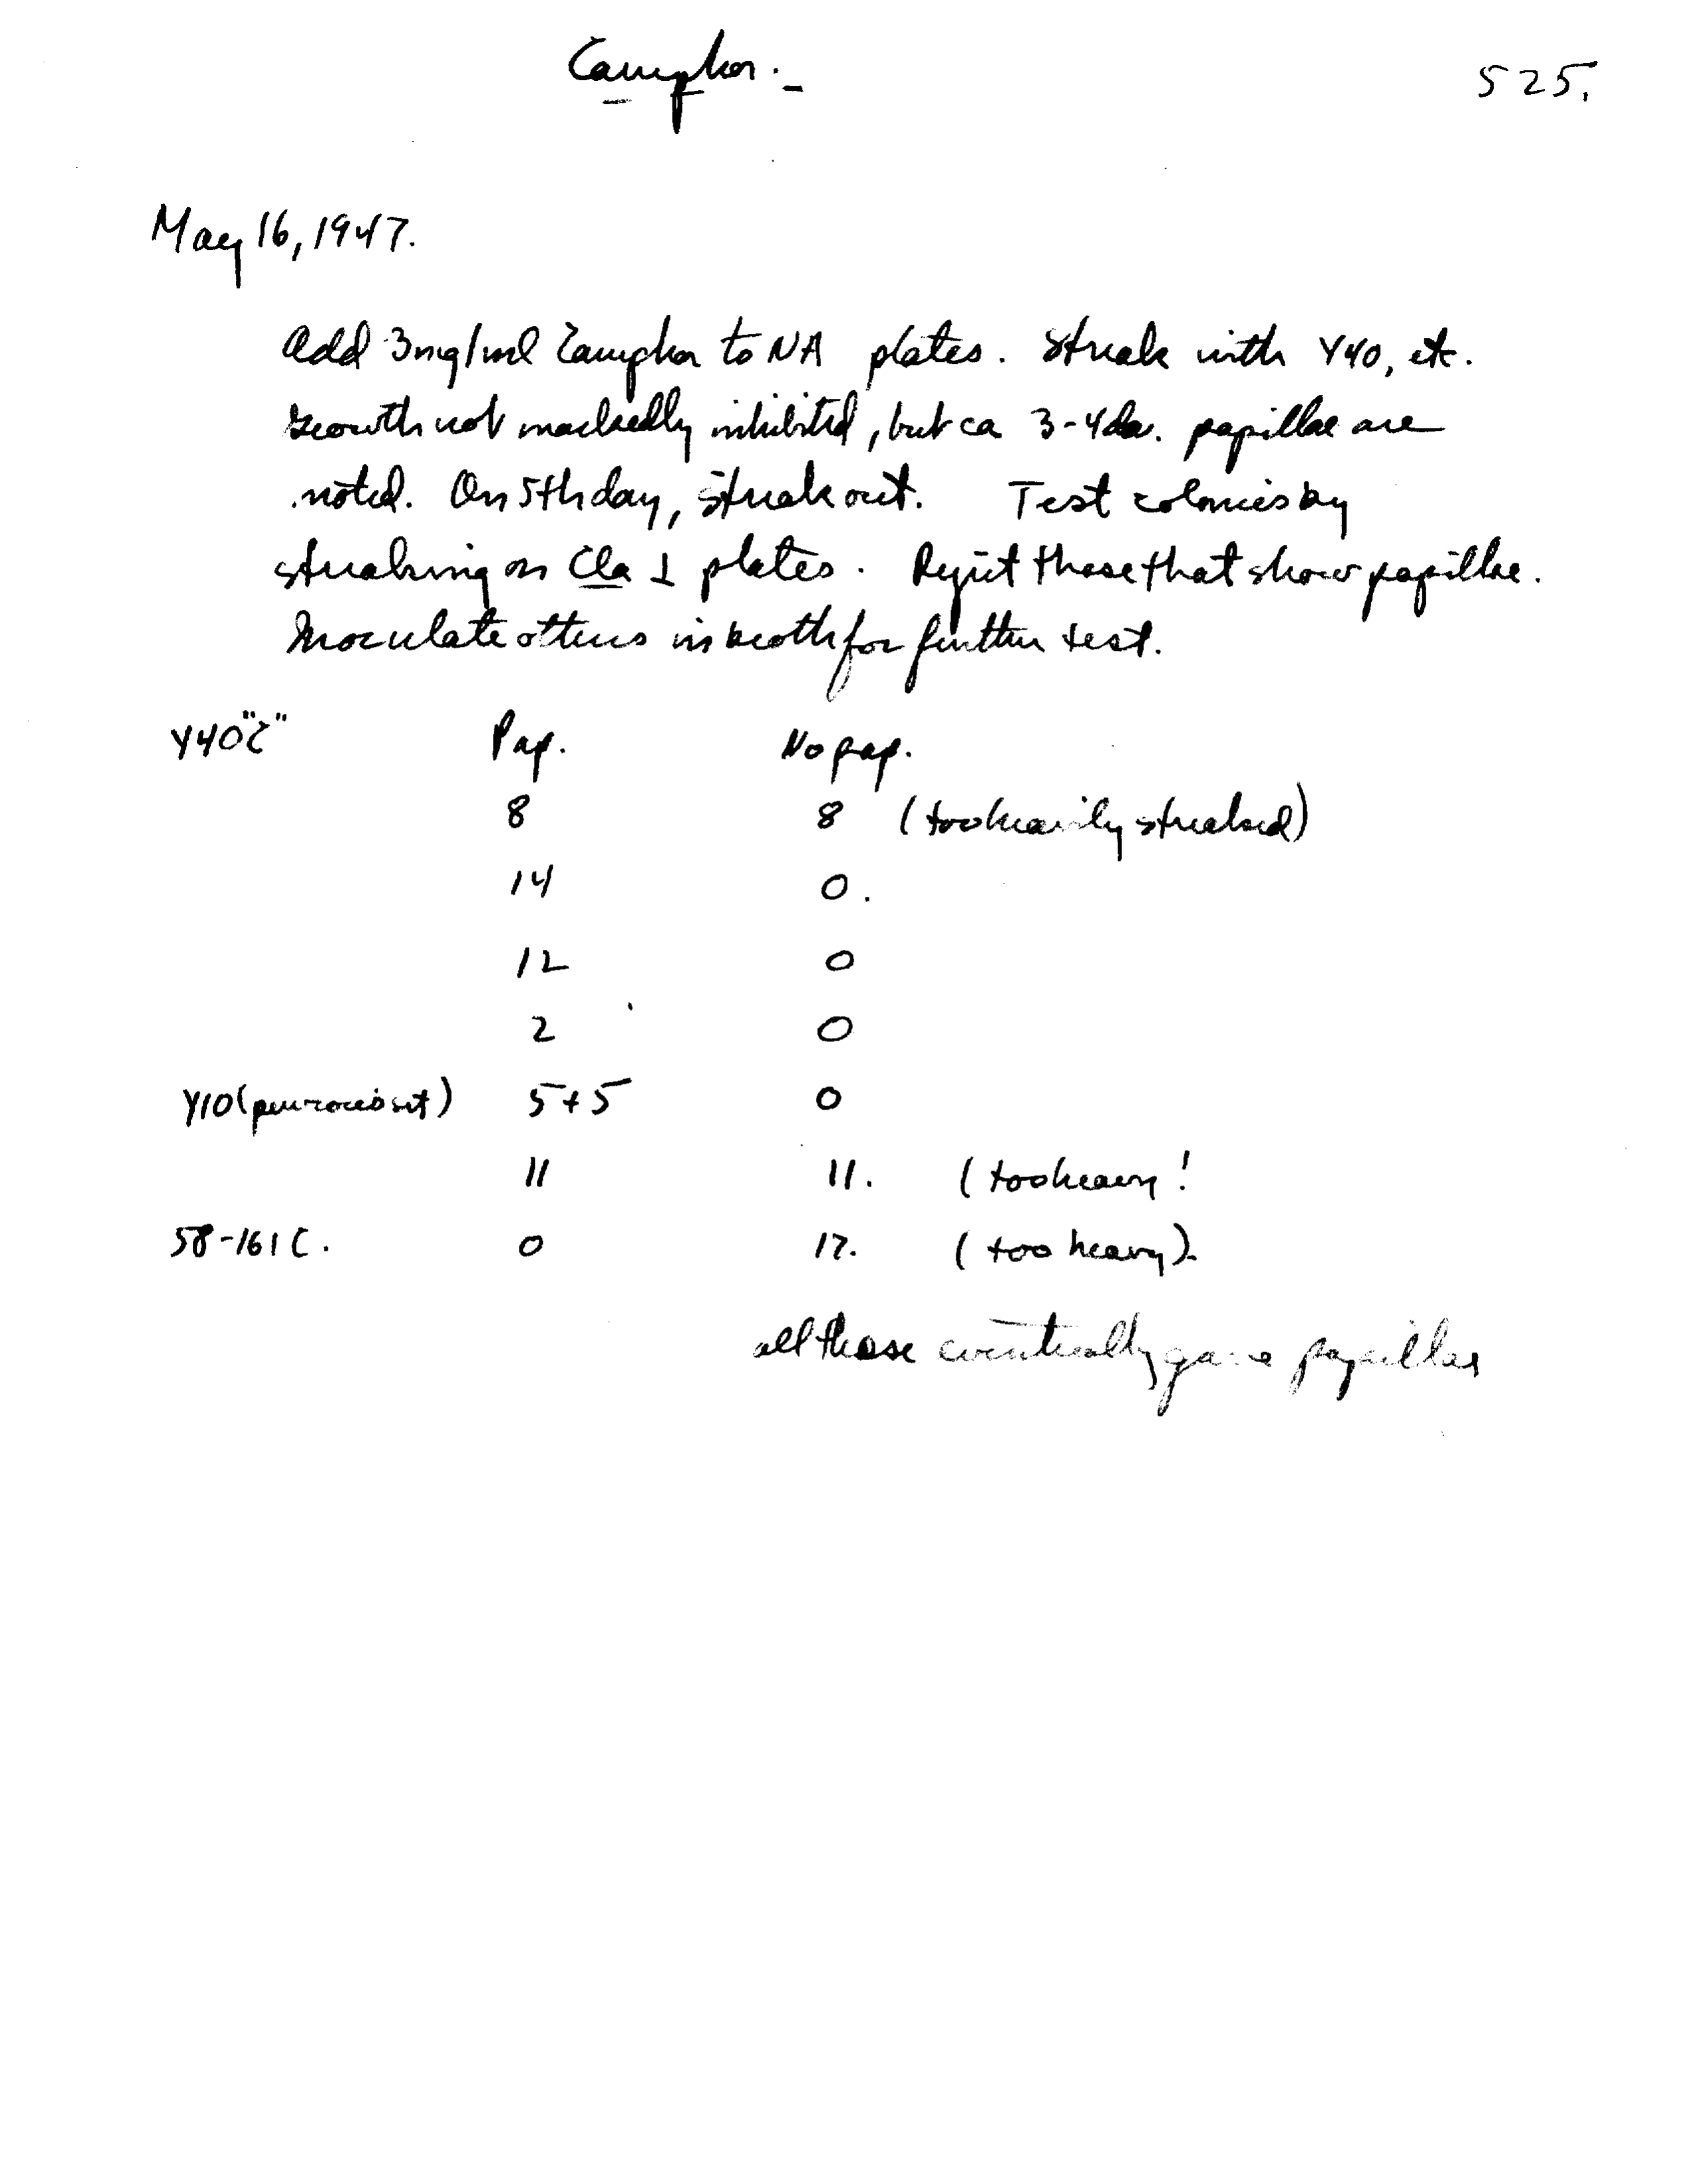 Camphor.
525.
May 16, 1947.
Add 3mg/ml Camphor to NA plates. Streak with Y40, etc.
Growth not markedly inhibited, but ca 3-4da. papillae are
noted. On 5th day, streak out. Test colonies by
streaking on Cla 1 plates. Reject those that show papillae.
Inoculate others in broth for further test.
Y40"C" Pap. No pap.
8 8 (too heavily streaked)
14 0.
12 0
2 0
Y10 ( 5+5 0
11 11. (too heavy!
58-161 C. 0 17. (too heavy).
all these eventually gave papillae